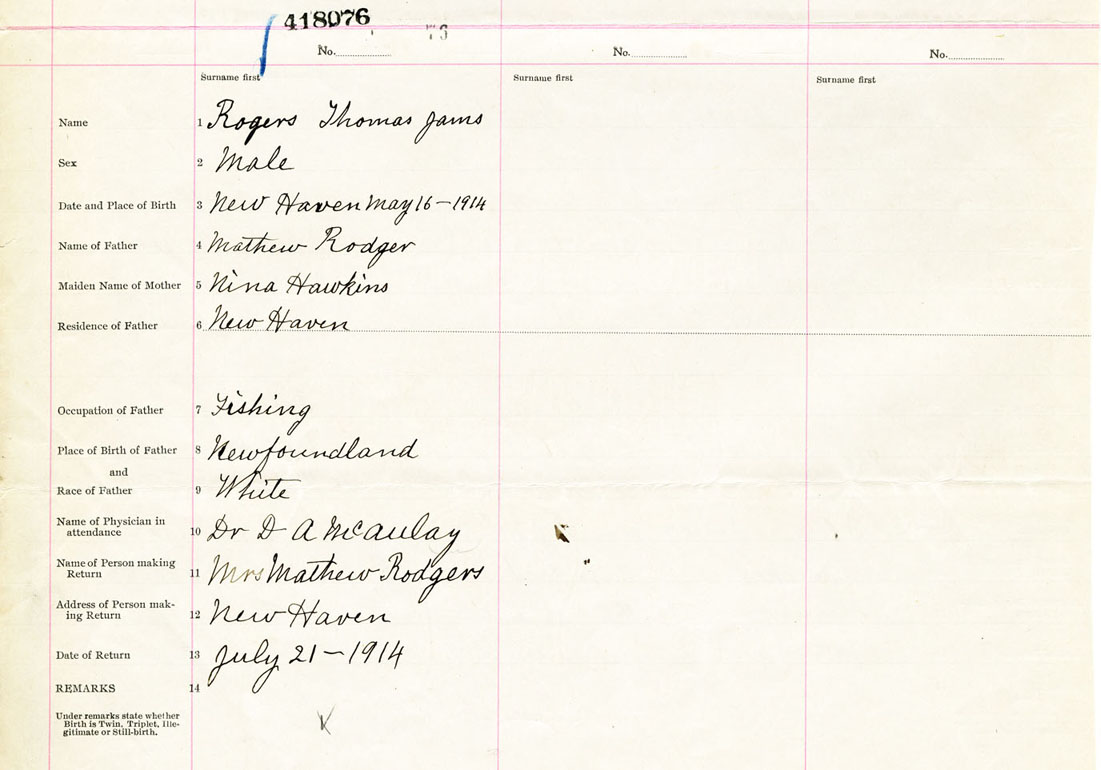 418076
No. No. No.
Surname first Surname first Surname first
Name 1 Rogers Thomas Jams
Sex 2 Male
Date and Place of Birth 3 New Haven May 16 - 1914
Name of Father 4 Mathew Rodger
Maiden Name of Mother 5 Nina Hawkins
Residence of Father 6 New Haven
Occupation of Father 7 Fishing
Place of Birth of Father 8 Newfoundland
and
Race of Father 9 White
Name of Physician in
attendance 10 Dr D A McAulay
Name of Person making
Return 11 Mrs Mathew Rodgers
Address of Person mak-
ing Return 12 New Haven
Date of Return 13 July 21 - 1914
REMARKS 14
Under remarks state whether
Birth is Twin, Triplet, Ille-
gitimate or Still-birth.